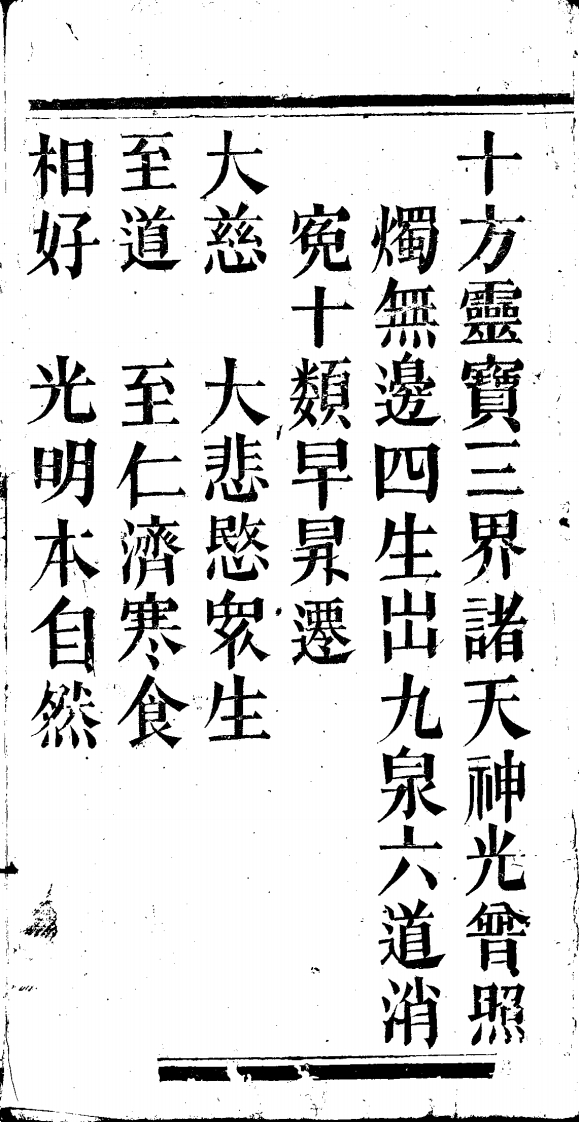 十方靈寶三界諸天神光曾照
燭無邊四生出九泉六道消
寃十類早昇遷
大慈　大悲愍衆生
至道　至仁濟寒食
相好　光明本自然